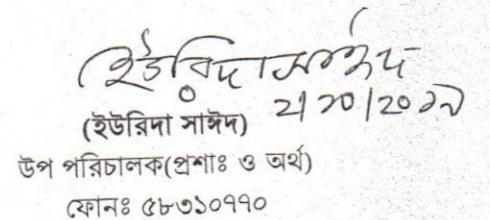 ইউরিদা সাঈদ
২/১০/২০১৯
(ইউরিদা সাঈদ)
উপ পরিচালক(প্রশাঃ ও অর্থ)
ফোনঃ ৫৮৩১০৭৭০